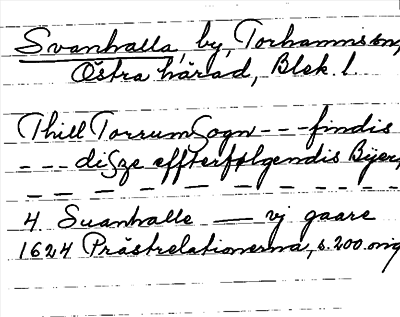 Svanhalla, by, Torhamns sn,
Östra härad, Blek. l.
Thill Torrum Sogn - - - findis
- - - disze effterfølgendis Bÿer,
— — — — — — — — — —
4 Suanhalle — vj gaare
1624 Prästrelationerna, s. 200. orig